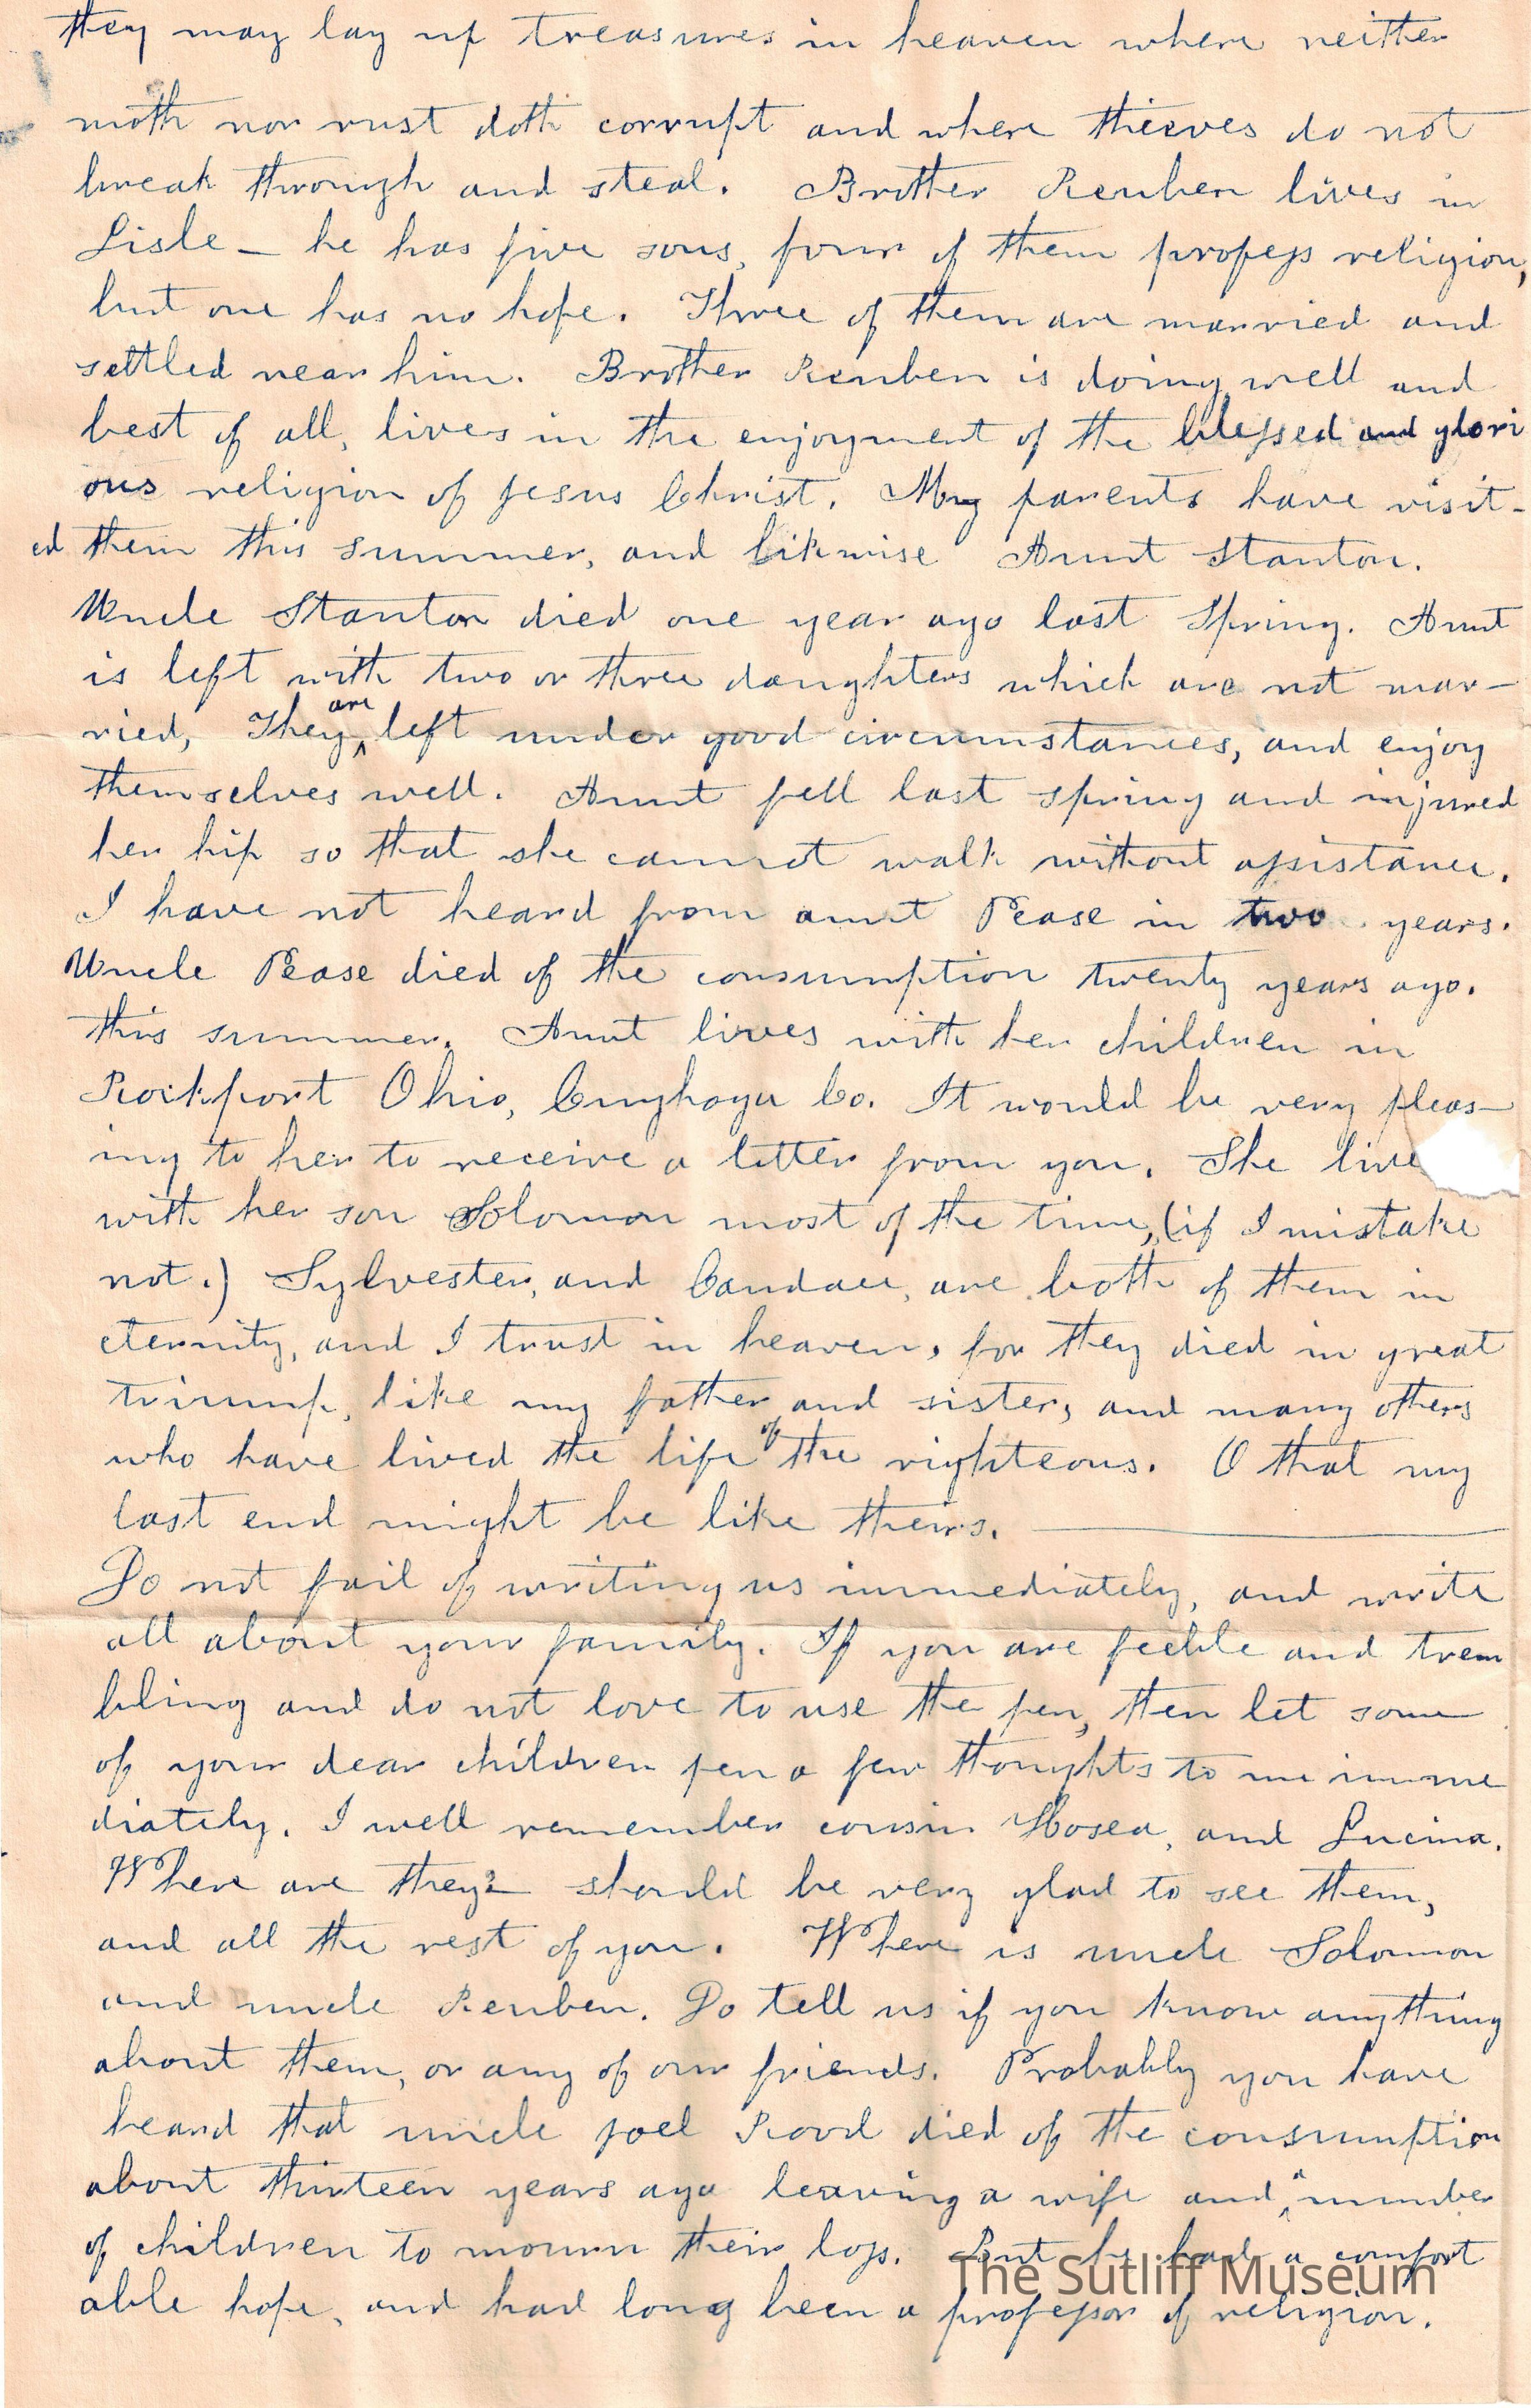 they may lay up treasures in heaven where neither
moth nor rust doth corrupt and where thieves do not
break through and steal. Brother Reuben lives in
Lisle – he has five sons, four of them profess religion,
but one has no hope. Three of them are married and
settled near him. Brother Reuben is doing well and
best of all, lives in the enjoyment of the blessed and glori
ous religion of Jesus Christ. My parents have visit-
ed them this summer, and likewise Aunt Stanton.
Uncle Stanton died one year ago last Spring. Aunt
is left with two or three daughters which are not mar-
ried, They are left under good circumstances, and enjoy
themselves well. Aunt fell last spring and injured
her hip so that she cannot walk without assistance.
I have not heard from aunt Pease in two years.
Uncle Pease died of the consumption twenty years ago.
this summer. Aunt lives with her children in
Rockport Ohio, Cuyhoga Co. It would be very pleas-
ing to her to receive a letter from you. She live
with her son Solomon most of the time, (if I mistake
not.) Sylvester, and Candace, are both of them in
eternity, and I trust in heaven, for they died in great
triump, like my father and sister, and many others
who have lived the life of the righteous. O that my
last end might be like theirs.
Do not fail of writing us immediately, and write
all about your family. If you are feeble and trem
bling and do not love to use the pen, then let some
of your dear children pen a few thoughts to me imme
diately. I well remember cousin Hosea, and Lucina.
Where are they? should be very glad to see them,
and all the rest of you. Where is uncle Solomon
and uncle Reuben. Do tell us if you know anything
about them, or any of our friends. Probably you have
heard that uncle Joel Rood died of the consumption
about thirteen years ago leaving a wife and a number
of children to mourn their loss. But he had a comfort
able hope, and had long been a professor of religion.
The Sutliff Museum